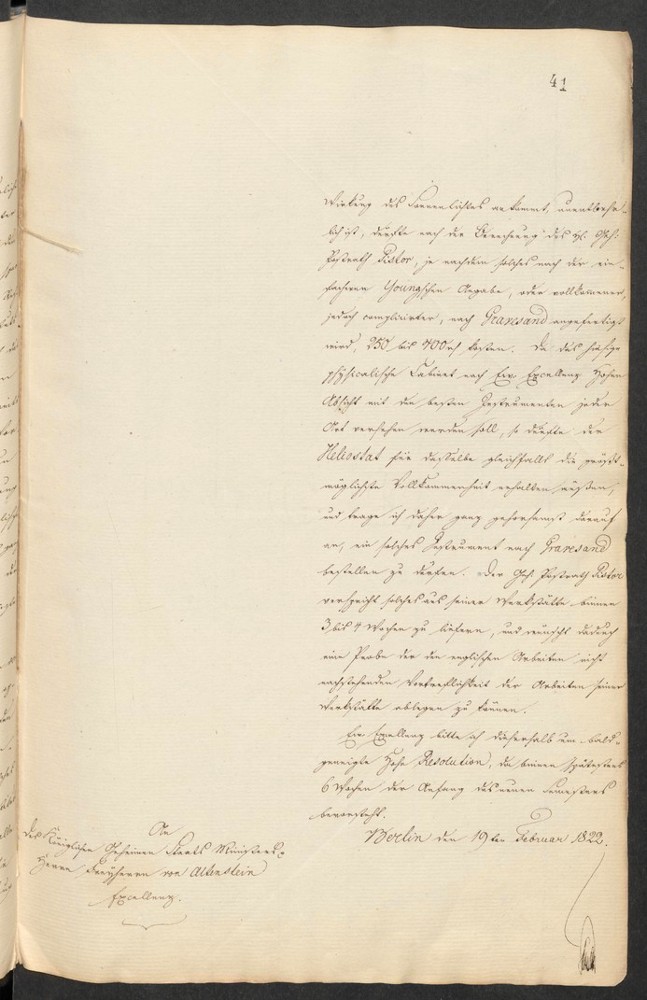 41
Wirkung des Sonnenlichtes ankommt, unentbehr-
lich ist, dürfte nach der Berechnung des H. Geh.
Postrath Pistor, je nachdem solches nach der ein-
facheren Youngschen Angabe, oder vollkommener,
jedoch complicirter, nach Gravesand angefertigt
wird, 250 bis 400 rl kosten. Da das hiesige
physicalische Cabinet nach Ew. Excellenz Hohen
Absicht mit den besten Instrumenten jeder
Art versehen werden soll, so dürfte der
Heliostat für dasselbe gleichfalls die größt-
möglichste Vollkommenheit erhalten müssen,
und trage ich daher ganz gehorsamst darauf
an, ein solches Instrument nach Gravesand
bestellen zu dürfen. Der Geh. Postrath Pistor
verspricht solches aus seiner Werkstätte binnen
3 bis 4 Wochen zu liefern, und wünscht dadurch
eine Probe der den englischen Arbeiten nicht
nachstehenden Vortrefflichkeit der Arbeiten seiner
Werkstätte ablegen zu können.
Ew. Excellenz bitte ich dieserhalb um bald-
geneigte Hohe Resolution, da binnen spätestens
6 Wochen der Anfang des neuen Semesters
bevorsteht.
Berlin den 19ten Februar 1822.
An
des Königlichen Geheimen Staats Ministers
Herrn Freyherrn von Altenstein
Excellenz.